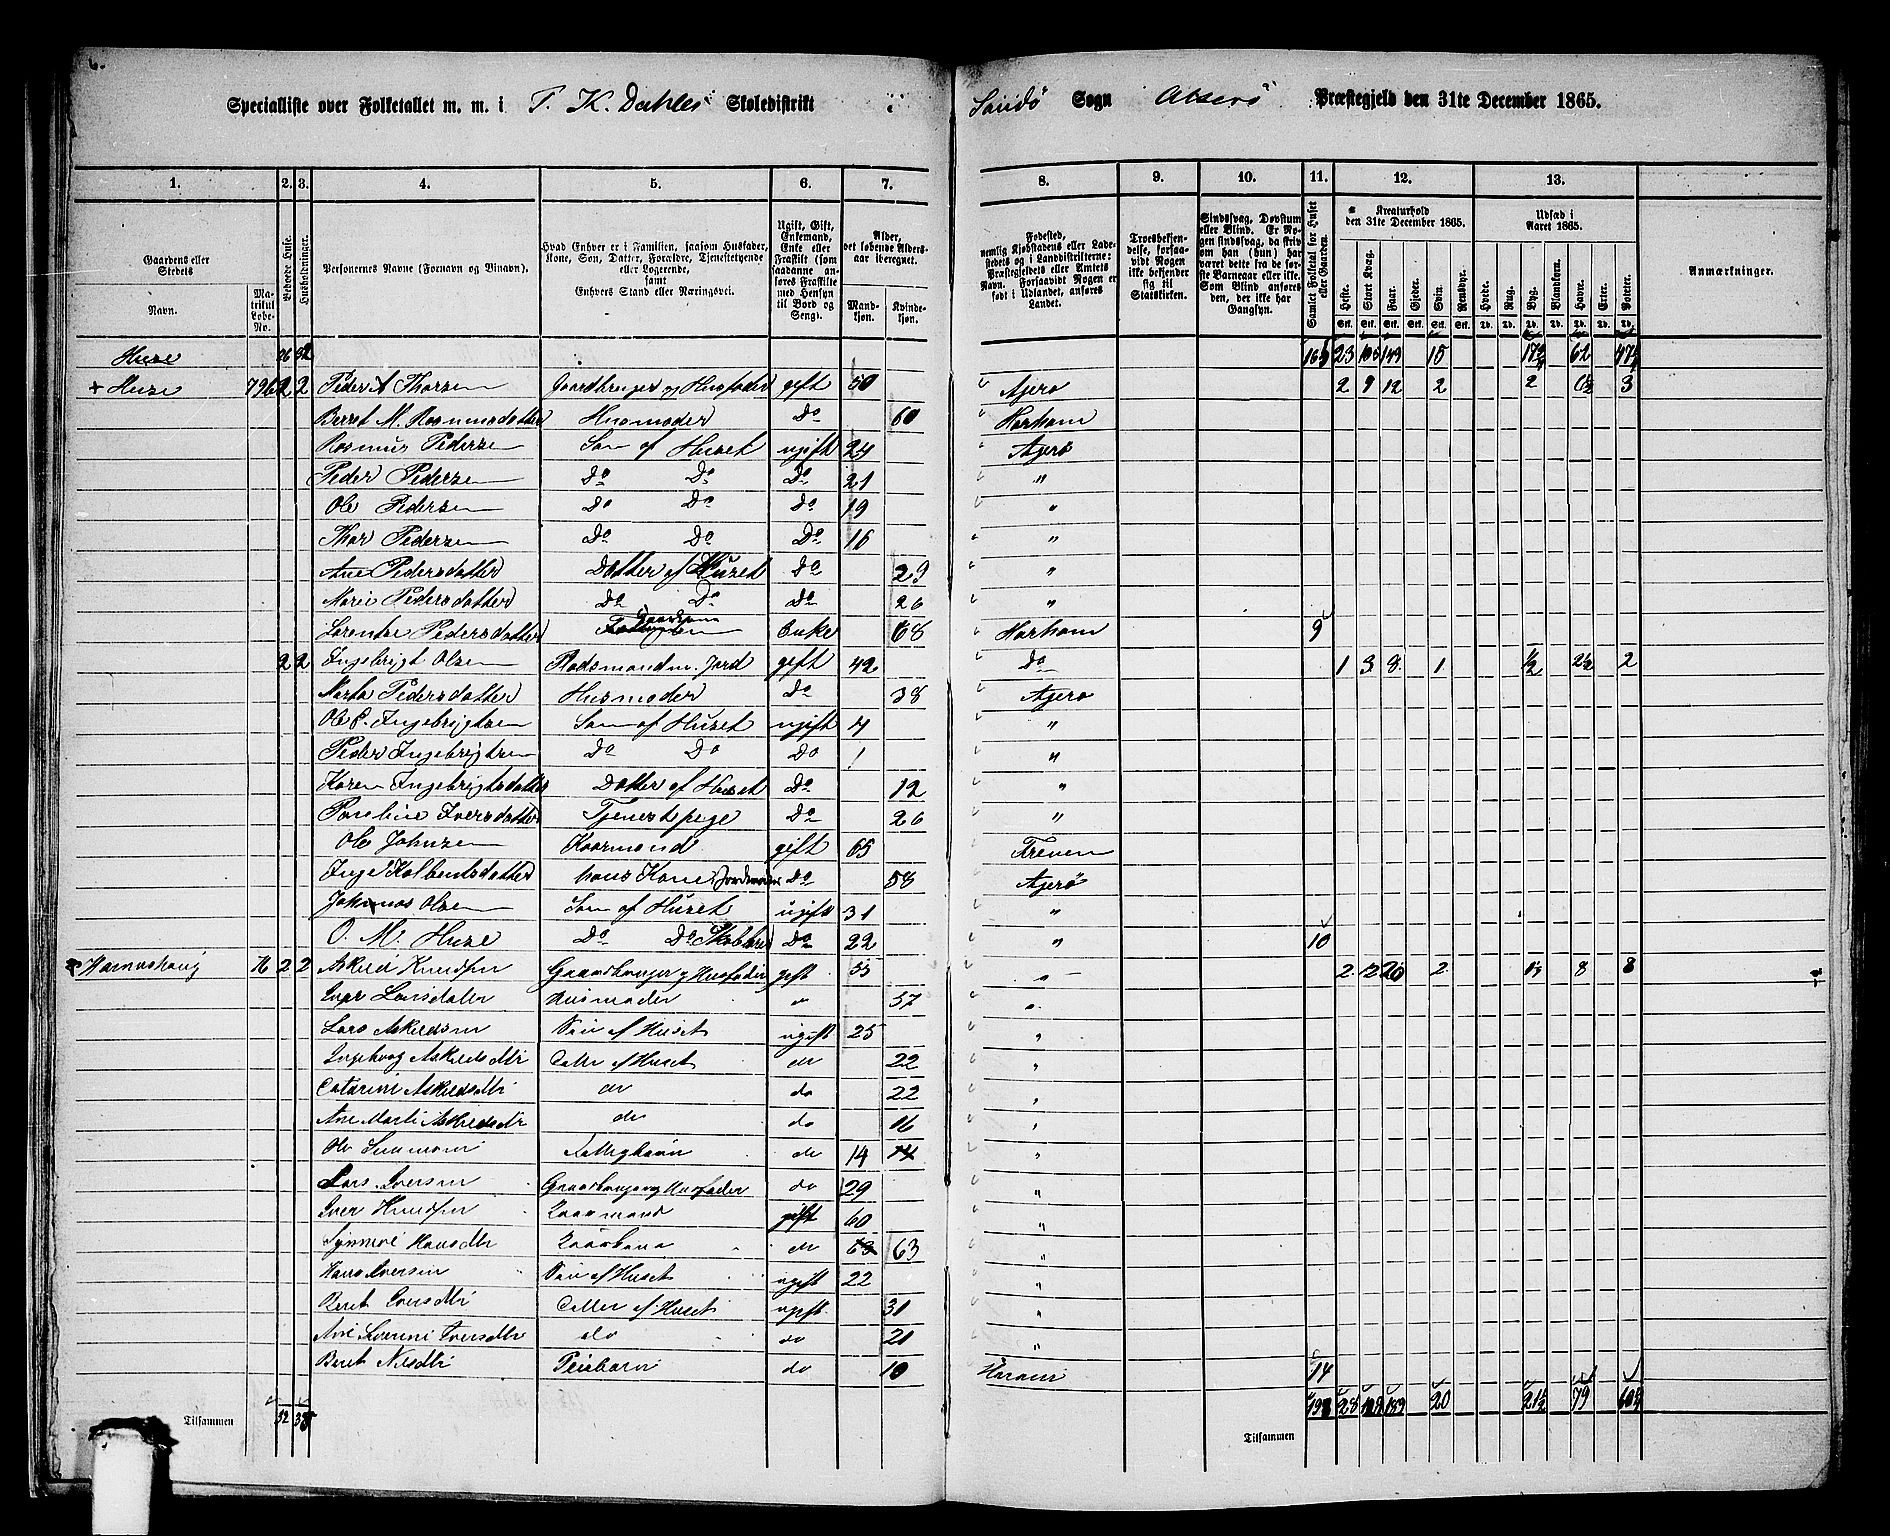 Specialliste over Folketallet m. m. i T. K. Dahles Skoledistrikt Sandö Sogn Præstegjeld den 31te December 1865.
1. 2. 3. 4. 5. 6. 7. 8. 9. 10. 11. 12. 13.
Gaardens eller Stedets
Navn.
Matrikul Løbe-No.
Beboede Huse.
Husholdninger.
Personernes Navne (Fornavn og Tilnavn).
Hvad Enhver er i Familien, saasom Husfader, Kone, Søn, Datter, Forældre, Tjenestetyende eller Logerende, samt Enhvers Stand eller Næringsvei.
Ugift, Gift, Enkemand, Enke eller Fraskilt (som saadanne anføres Fraskilte med Hensyn til Bord og Seng).
Alder, det løbende Aldersaar iberegnet.
Mandkjøn. Kvindekjøn.
Fødested, nemlig Kjøbstadens eller Ladestedets og i Landdistrikterne: Præstegjeldets eller Amtets Navn. Forsaavidt Nogen er født i Udlandet, anføres Landet.
Troesbekjendelse, forsaavidt Nogen ikke bekjender sig til Statskirken.
Sindssvag, Døvstum eller Blind. Er Nogen sindssvag, da skriv om han (hun) har været dette fra de første Barneaar eller ikke. Som Blind anføres den, der ikke har Gangsyn.
Samlet Folketal for Huset eller Gaarden.
Kreaturhold den 31te December 1865.
Heste. Stort Kvæg. Faar. Gjeder. Svin. Rensdyr.
Udsæd i Aaret 1865.
Hvede. Rug. Byg. Blandkorn. Havre. Erter. Poteter.
Anmærkninger.
Huse 165 23 149
+ Huse 796 2 2 Peder A Thorsen Gaardbruger og Husfader gift 50 Ajerø 2 9 12 2 2 6½ 3
Berret M. Rasmusdatter Husmoder Do 60 Harham
Rasmus Pedersen Søn af Huset ugift 24 Ajerö
Peder Pedersen Do Do Do 21 "
Ole Pedersen Do Do Do 19 "
Thor Pedersen Do Do Do 16 "
Ane Pedersdatter Datter af Huset Do 29 "
Marie Pedersdatter Do Do Do 26 "
Lorentse Pedersdatter Enke 68 Harham 9
2 2 Ingebrigt Olsen gift 42 Do 1 3 8 1 ½ 2½ 2
Marta Pedersdatter Husmoder Do 38 Ajerø
Ole P. Ingebrigtsen Søn af Huset ugift 4 "
Peder Ingebrigtsen Do Do Do 1 "
Karen Ingebrigtsdatter Datter af Huset Do 12 "
Iversdatter Tjenestpige Do 26 "
Ole Johnsen Kaarmand gift 65
Inge Kolbentsdatter hans Kone Do 58 Ajerö
Johannes Olsen Søn af Huset ugift 31 "
O. M. Huse Do Do Do 22 " 10
Hamnshaug 76 2 2 Askild Knudsen Gaardbruger og Husfader gift 55 2 12 20 2 8 8
Larsdatter Husmoder 57
Lars Askildsen Søn af Huset ugift 25 "
Ingeborg Askildsdtr Datter af Huset do 22 "
Catarine Askildsdtr do do 22 "
Ane Marte Askildsdtr do do 16 "
do 14 "
Lars Iversen Gaardbruger og Husfader do 29 "
Iver Knudsen Kaarmand gift 60 "
Synnøve Hansdtr Kaarkone do 63 "
Hans Iversen Søn af Huset ugift 22 "
Beret Iversdtr Datter af Huset ugift 31 "
Ane Severine Iversdtr do do 21 "
Beret Nilsdtr Pleiebarn do 10 Haram 14
Tilsammen 32 20 21½ 79
Tilsammen